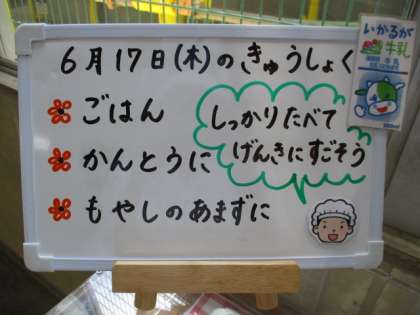 6月17日(木)のきゅうしょく
ごはん
かんとうに
もやしのあまずに
しっかりたべて
げんきにすごそう
いかるが
牛乳